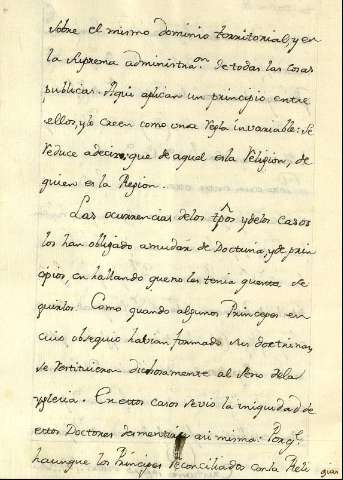 sobre el mismo dominio territorial, y en
la suprema administra.on de todas las cosas
publicas. Aqui aplican un principio entre
ellos, y lo creen como una regla invariable: se
reduce a decir, que de aquel es la Religion, de
quien es la Region.
Las ocurrencias de los tpõs y de los casos
los han obligado a mudar de Doctrina, y de prin
cipios, en hallando que no les tenia quenta se
guirlos. Como quando algunos Principes en
cuio obsequio habian formado sus doctrinas,
se restituieron dichosamente al seno de la
yglesia. En estos casos se vió la iniquidad de
estos Doctores desmentirse asi misma: Porq.e
haunque los Principes reconciliados con la Reli
gion